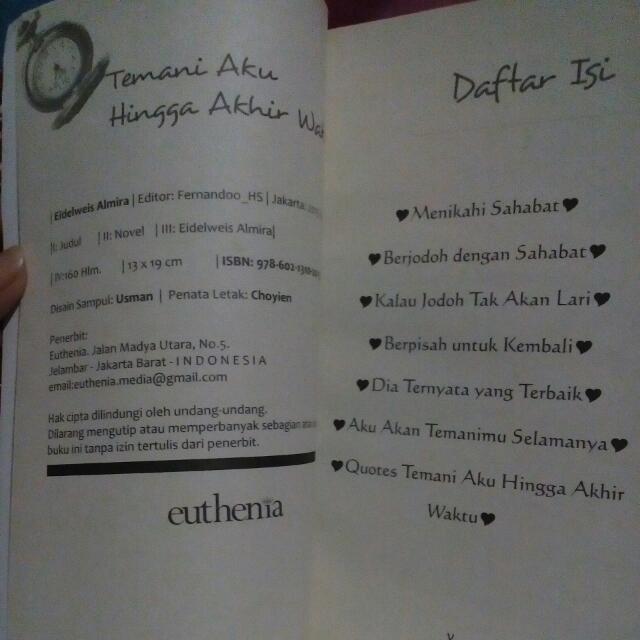 Temani Aku
Hingga Akhir
Eidelweis Almira | Editor: Fernandoo_HS | Jakarta:
I: Judul | II: Novel | III: Eidelweis Almira|
IV:160 Hlm. | 13 x 19 cm | ISBN: 978-602-
Disain Sampul: Usman | Penata Letak: Choyien
Penerbit:
Euthenia. Jalan Madya Utara, No.5.
Jelambar - Jakarta Barat - I N D O N E S I A
email:euthenia.media@gmail.com
Hak cipta dilindungi oleh undang-undang.
Dilarang mengutip atau memperbanyak sebagian
buku ini tanpa izin tertulis dari penerbit.
euthenia
Daftar Isi
Menikahi Sahabat
Berjodoh dengan Sahabat
Kalau Jodoh Tak Akan Lari
Berpisah untuk Kembali
Dia Ternyata yang Terbaik
Aku Akan Temanimu Selamanya
Quotes Temani Aku Hingga Akhir
Waktu
v